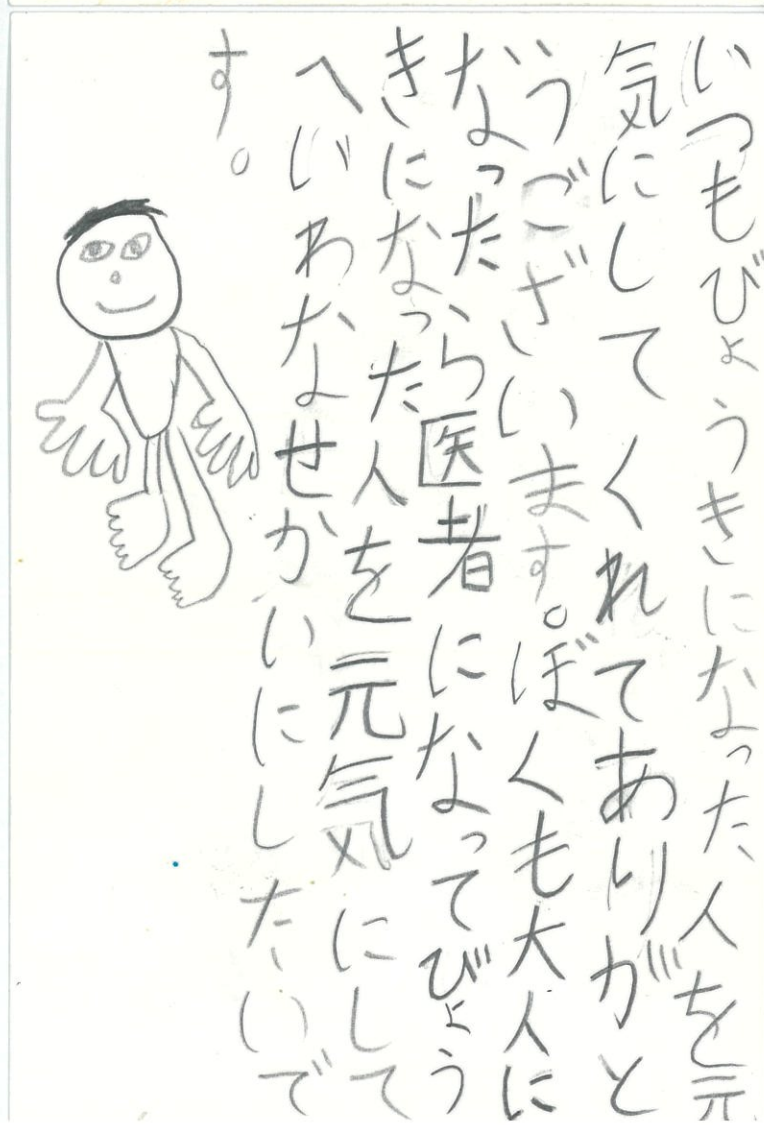 いつもびょうきになった人を元
気にしてくれてありがと
うございます。ぼくも大人に
なったら医者になってびょう
きになった人を元気にして
へいわなせかいにしたいで
す。